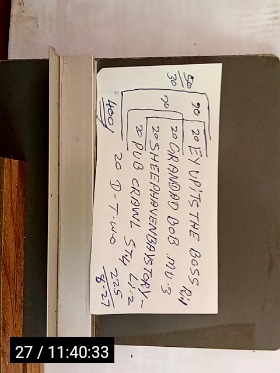 50
30
90 20 EY UP ITS THE BOSS
70 20 GRANDAD BOB MU-3
20 SHEEPHAVENBAY STORY-
20 PUB CRAWL ST4 L1-2
400
20 D-TWO 225
8-27
27 / 11:40:33